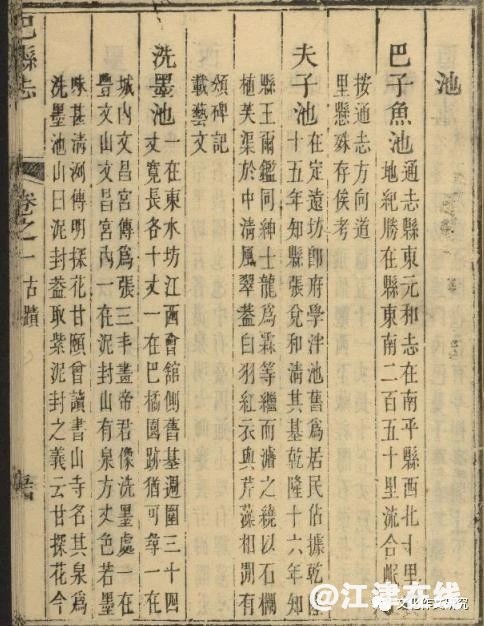 池
巴子魚池
通志縣東元和志在南平縣西北
地紀勝在縣東南二百五十里流合岷
按通志方向道
里懸殊存俟考
夫子池
在定遠坊卽府學泮池舊爲居民佔據乾
十五年知縣張兌和清其基乾隆十六年知
縣王爾鑑同紳士龍爲霖等繼而濬之繞以石欄
植芙渠於中清風翠葢白羽紅衣與芹藻相澗有
頌碑記
載藝文
洗墨池
一在東水坊江西會館側舊基週圍三十四
丈寬長各十丈一在巴橘園跡猶可尋一在
城內文昌宮傳爲張三丰畫帝君像洗墨處一在
豐文山文昌宮內一在泥封山有泉方丈色若墨
味甚清冽傳明探花甘頤曾讀書山寺名其泉爲
洗墨池山曰泥封葢取紫泥封之義云甘探花今
巴縣志
卷之一古蹟
@江津在线